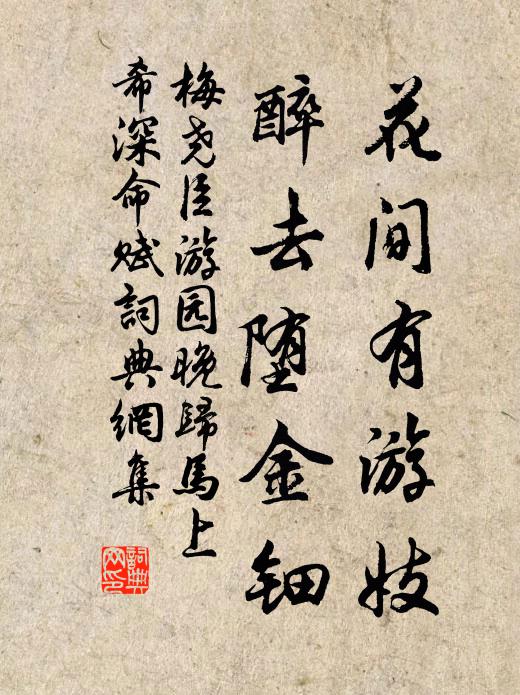 花间有游妓
醉去堕金钿
梅尧臣游园晚歸馬上
希深命赋詞典網集
詞典网印